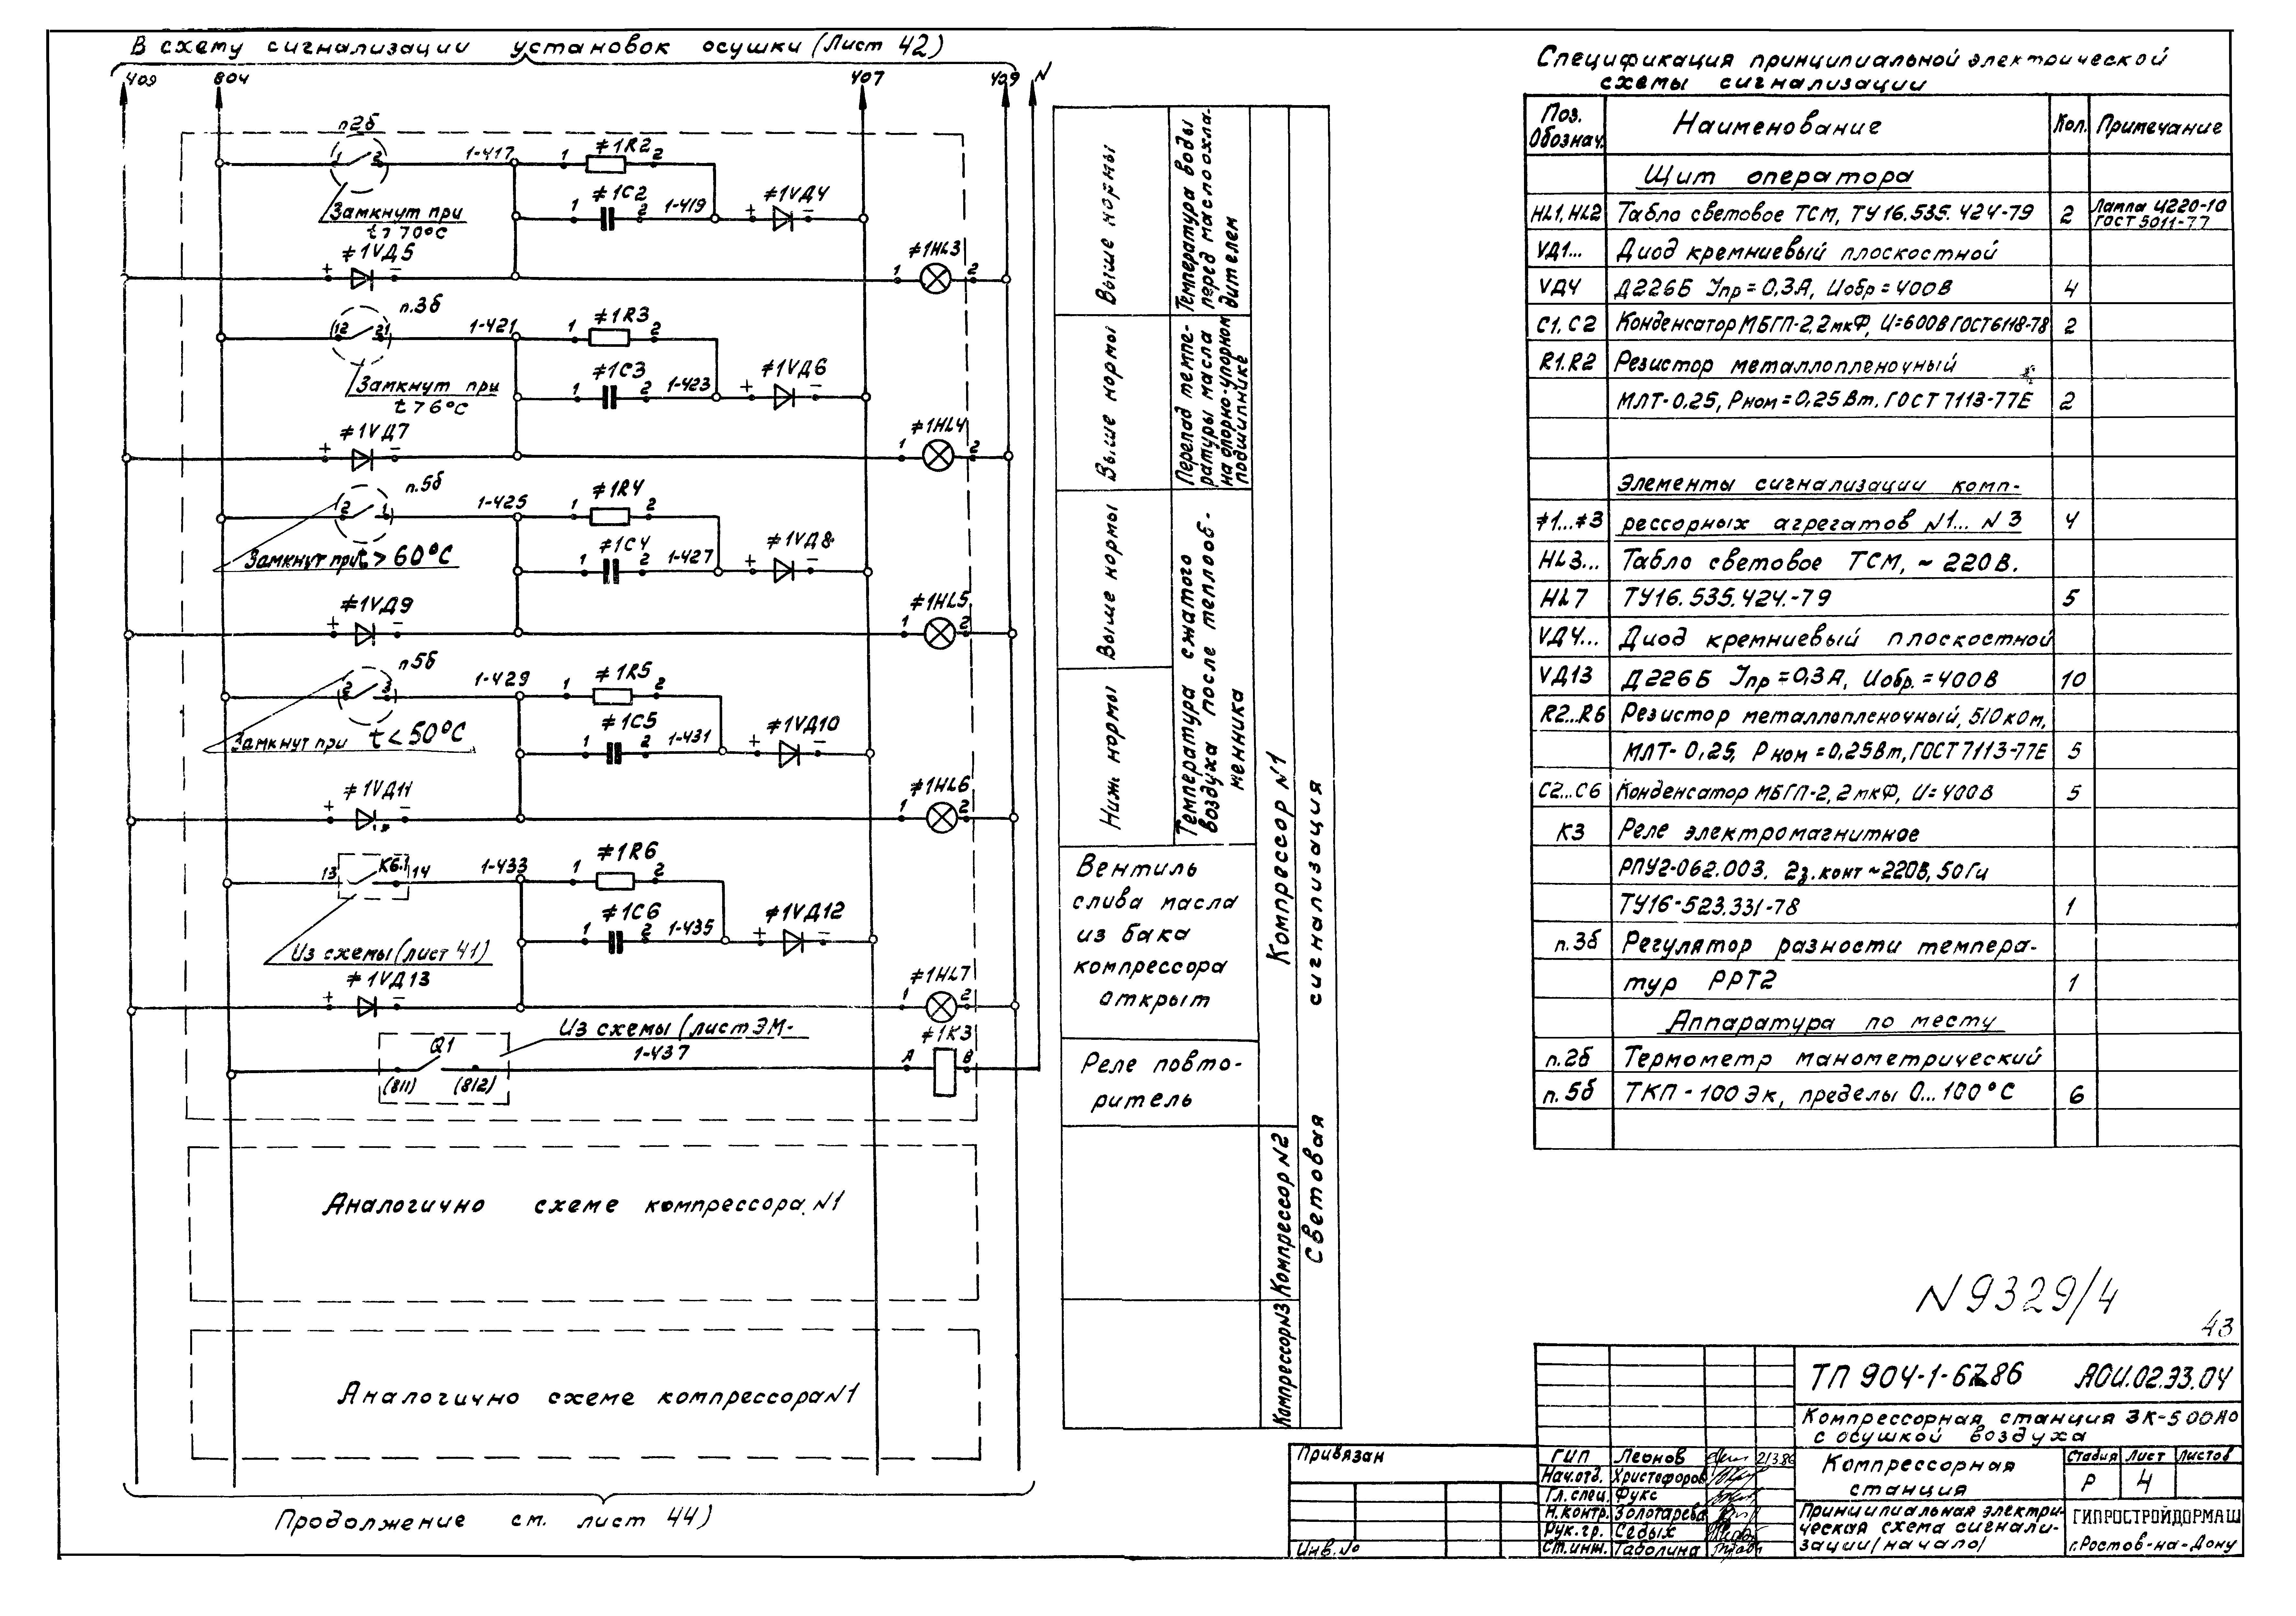 В схему сигнализации установок осушки (Лист 42)
409 804 407 409 N
п2б
1 2 1-417 1 ≠1R2 2
≠1C2
1 2 1-419 + ≠1VД4 −
Замкнут при
t > 70°С
≠1VД5
+ − 1 ≠1HL3 2
п.3б
12 21 1-421 1 ≠1R3 2
≠1C3
1 2 1-423 + ≠1VД6 −
Замкнут при
t > 6°С
≠1VД7
+ − 1 ≠1HL4 2
п.5б
2 1 1-425 1 ≠1R4 2
≠1C4
1 2 1-427 + ≠1VД8 −
Замкнут при t > 60°С
≠1VД9
+ − 1 ≠1HL5 2
п5б
2 3 1-429 1 ≠1R5 2
≠1C5
1 2 1-431 + ≠1VД10 −
Замкнут при t < 50°С
≠1VД11
+ − 1 ≠1HL6 2
13 К6.1 14 1-433 1 ≠1R6 2
≠1C6
1 2 1-435 + ≠1VД12 −
Из схемы (лист 41)
≠1VД13
+ − 1 ≠1HL7 2
Из схемы (лист ЭМ-
Q1 1-437 А ≠1К3 В
(811) (812)
Аналогично схеме компрессора N1
Аналогично схеме компрессора N1
Продолжение см. лист 44)
Выше нормы
Температура воды
перед маслоохла-
дителем
Выше нормы
Перепад темпе-
ратуры масла
на опорно-упорном
подшипнике
Выше нормы
Ниж нормы
Температура сжатого
воздуха после теплооб-
менника
Вентиль
слива масла
из бака
компрессора
открыт
Реле повто-
ритель
Компрессор N1
Компрессор N2
Компрессор N3
Световая сигнализация
Спецификация принципиальной электрической
схемы сигнализации
Поз. Обознач. Наименование Кол. Примечание
Щит оператора
HL1, HL2 Табло световое ТСМ, ТУ16.535.424-79 2 Лампа Ц220-10
ГОСТ 5011-77
VД1... Диод кремниевый плоскостной
VД4 Д226Б Iпр = 0,3А, Uобр = 400В 4
С1, С2 Конденсатор МБГП-2, 2мкФ, U=600В ГОСТ6118-78 2
R1.R2 Резистор металлопленочный
МЛТ-0,25, Рном = 0,25Вт. ГОСТ 7113-77Е 2
Элементы сигнализации комп-
≠1...≠3 рессорных агрегатов N1... N3 4
HL3... Табло световое ТСМ, ~ 220В.
HL7 ТУ16.535.424.-79 5
VД4... Диод кремниевый плоскостной
VД13 Д226Б Iпр = 0,3А, Uобр. = 400В 10
R2...R6 Резистор металлопленочный, 510кОм,
МЛТ-0,25, Рном = 0,25Вт, ГОСТ 7113-77Е 5
С2...С6 Конденсатор МБГП-2, 2мкФ, U=400В 5
К3 Реле электромагнитное
РПУ2-062.003. 2з.конт ~220В, 50Гц
ТУ16-523.331-78 1
п.3б Регулятор разности темпера-
тур РРТ2 1
Аппаратура по месту
п.2б Термометр манометрический
п.5б ТКП-100Эк, пределы 0...100°С 6
N9329/4
43
ТП 904-1-6 .86 АОИ.02.ЭЗ.04
Компрессорная станция 3К-500АО
с осушкой воздуха
Компрессорная
станция
Стадия Лист Листов
Р 4
Принципиальная электри-
ческая схема сигнали-
зации (начало)
ГИПРОСТРОЙДОРМАШ
г.Ростов-на-Дону
Привязан
Инв. №
ГИП Леонов
Нач.отд. Христофоров
Гл.спец. Фукс
Н.контр. Золотарева
Рук.гр. Седых
Ст.инж. Таболина